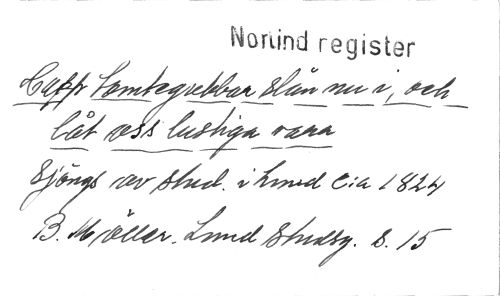 Norlind register
Hopp Tomtegubbar slån nu i, och
låt oss lustiga vara
Sjöngs av stud. i Lund c:a 1824
B. Möller. Lund Studsg. s. 15